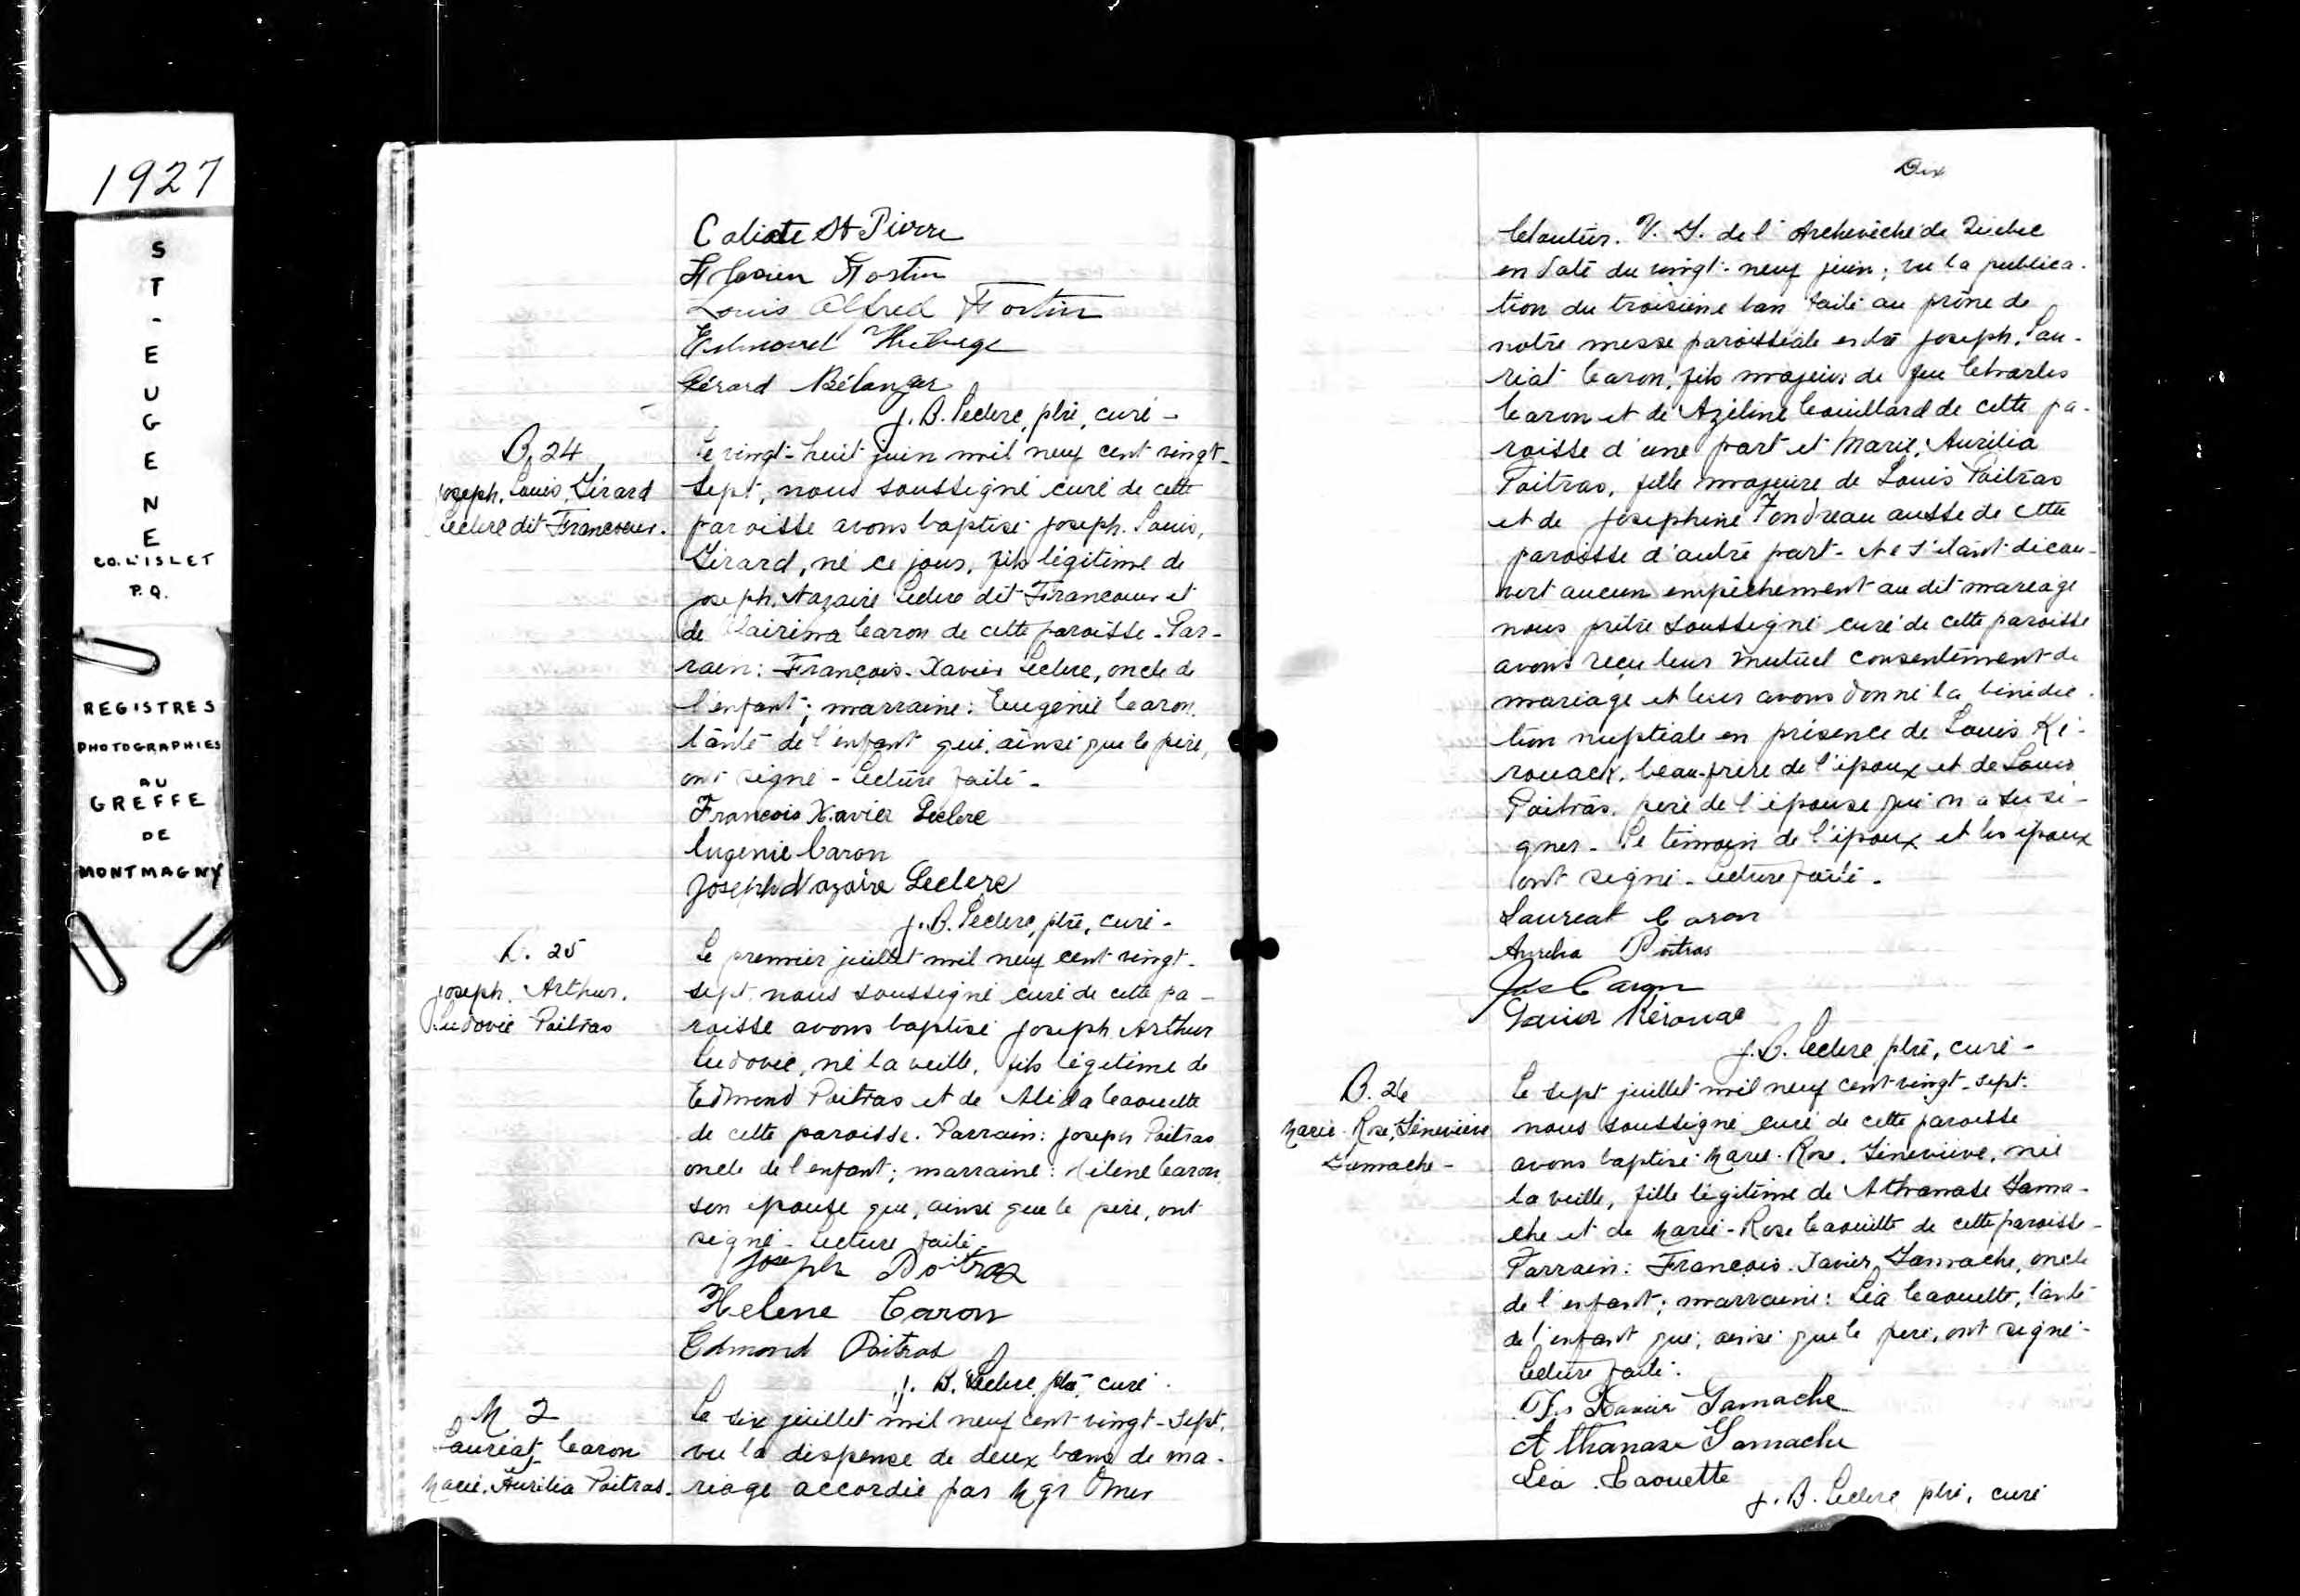 1927
ST-EUGENE
CO. L'ISLET
P.Q.
REGISTRES
PHOTOGRAPHIES
AU
GREFFE
DE
MONTMAGNY
Calixte St Pierre
Fortin
Louis Alfred Fortin
Edmond
Gérard Bélanger
J. B. Leclerc, ptre, curé -
B. 24
Joseph, Louis, Gérard
Leclerc dit Francoeur.
Le vingt-huit juin mil neuf cent vingt-
sept, nous soussigné curé de cette
paroisse avons baptisé Joseph, Louis,
Gérard, né ce jour, fils légitime de
Joseph, Nazaire Leclerc dit Francoeur et
de Caron de cette paroisse - Par-
rain: François-Xavier Leclerc, oncle de
l'enfant; marraine: Eugénie Caron,
tante de l'enfant qui, ainsi que le père,
ont signé - Lecture faite -
Francois Xavier Leclerc
Eugenie Caron
Joseph Nazaire Leclerc
J. B. Leclerc, ptre, curé -
B. 25
Joseph, Arthur,
Ludovic Poitras
Le premier juillet mil neuf cent vingt-
sept, nous soussigné curé de cette pa-
roisse avons baptisé Joseph Arthur
Ludovic, né la veille, fils légitime de
Edmond Poitras et de Alida Caouette
de cette paroisse. Parrain: Joseph Poitras
oncle de l'enfant; marraine: Hélène Caron,
son épouse qui, ainsi que le père, ont
signé - Lecture faite -
Joseph Poitras
Helene Caron
Edmond Poitras
J. B. Leclerc, ptre, curé -
M 2
Lauréat Caron
et
Marie, Aurélia Poitras -
Le six juillet mil neuf cent vingt-sept,
vu la dispense de deux bans de ma-
riage accordée par Mgr Omer
Dix
Cloutier, V. G. de l'Archevêché de Québec
en date du vingt-neuf juin; vu la publica-
tion du troisième ban faite au prône de
notre messe paroissiale entre Joseph, Lau-
réat Caron, fils majeur de feu Charles
Caron et de Azéline Couillard de cette pa-
roisse d'une part et Marie, Aurélia
Poitras, fille majeure de Louis Poitras
et de Joséphine Fondreau aussi de cette
paroisse d'autre part - Ne s'étant décou-
vert aucun empêchement au dit mariage
nous prêtre soussigné curé de cette paroisse
avons reçu leur mutuel consentement de
mariage et leur avons donné la bénédic-
tion nuptiale en présence de Louis Ki-
rouack, beau-frère de l'époux et de Louis
Poitras, père de l'épouse qui n'a su si-
gner - Le témoin de l'époux et les époux
ont signé - Lecture faite -
Laureat Caron
Aurelia Poitras
Jos Caron
J. B. Leclerc ptre, curé -
B. 26
Marie, Rose, Geneviève
Gamache -
Le sept juillet mil neuf cent vingt-sept,
nous soussigné curé de cette paroisse
avons baptisé Marie-Rose, Geneviève, née
la veille, fille légitime de Athanase Gama-
che et de Marie-Rose Caouette de cette paroisse -
Parrain: François-Xavier Gamache, oncle
de l'enfant; marraine: Léa Caouette, tante
de l'enfant qui, ainsi que le père, ont signé -
Lecture faite.
Frs Xavier Gamache
Athanase Gamache
Léa Caouette
J. B. Leclerc, ptre, curé